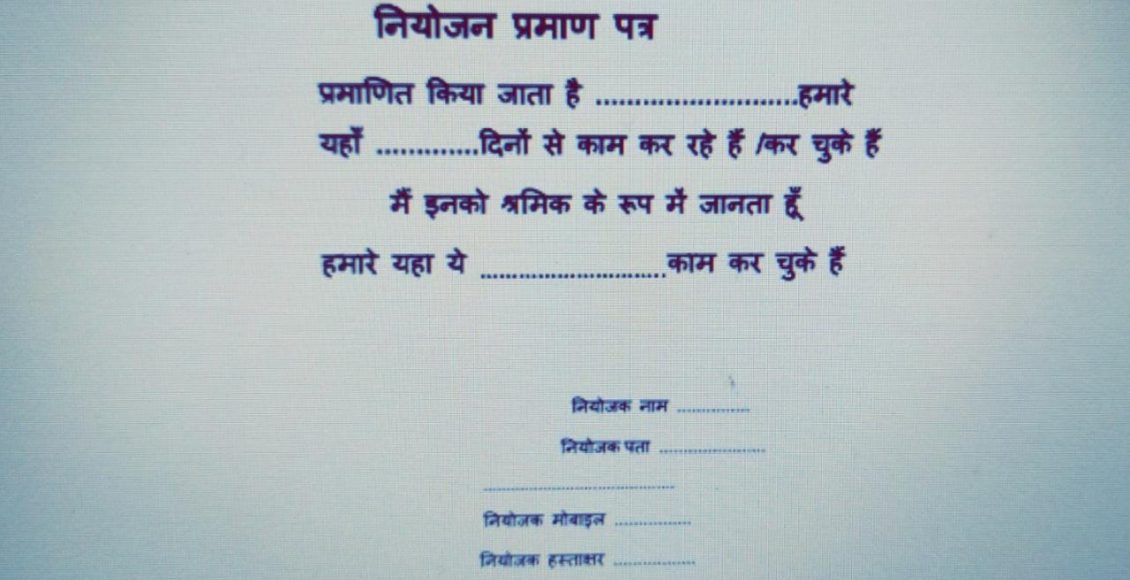 नियोजन प्रमाण पत्र
प्रमाणित किया जाता है ..........................हमारे
यहाँ .............दिनों से काम कर रहे हैं /कर चुके हैं
मैं इनको श्रमिक के रूप में जानता हूँ
हमारे यहा ये ............................काम कर चुके हैं
नियोजक नाम ................
नियोजक पता .......................
..........................................
नियोजक मोबाइल .................
नियोजक हस्ताक्षर ..................